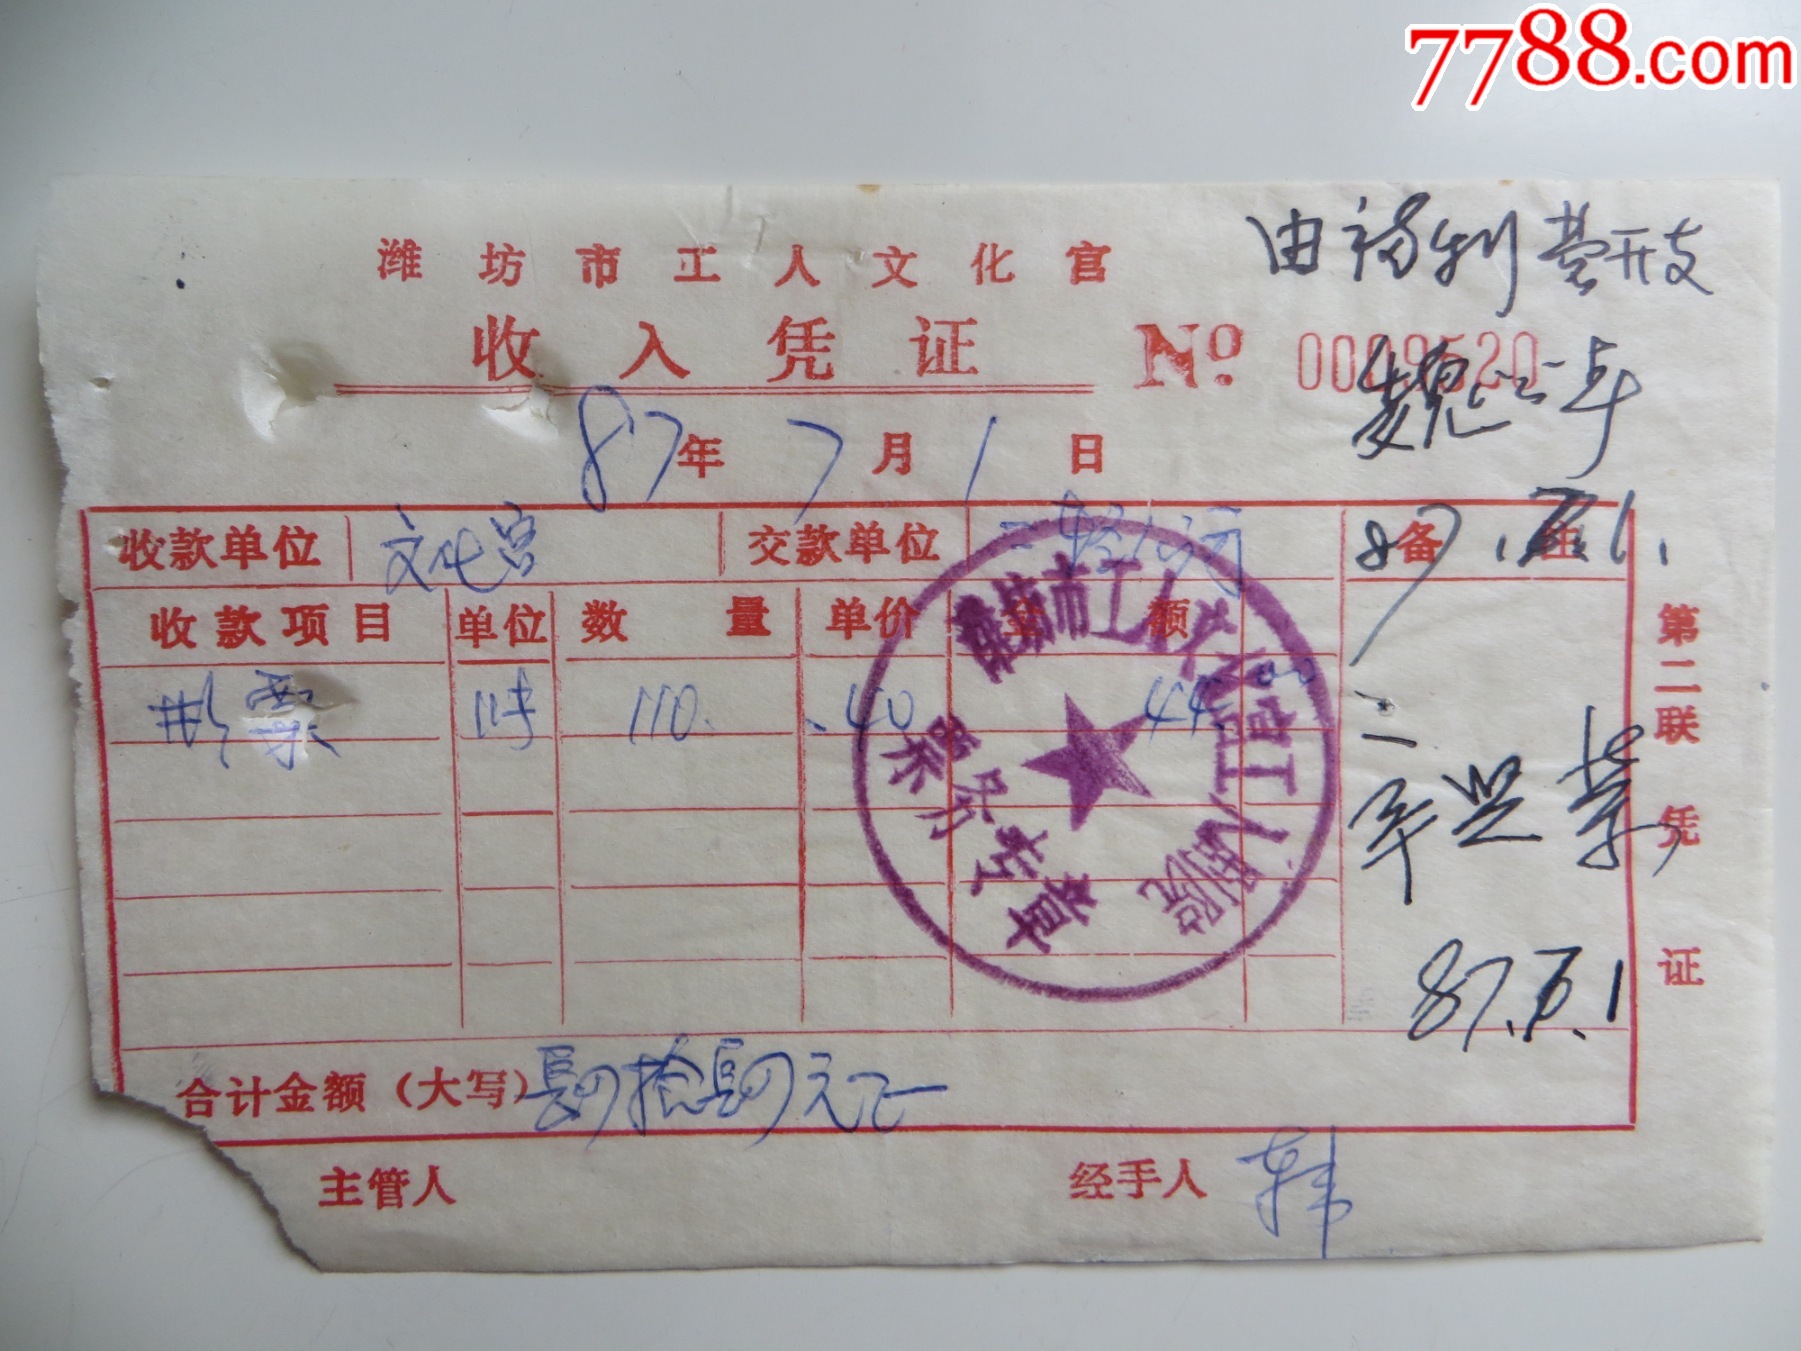 7788.com
潍坊市工人文化宫
由福利费开支
收入凭证 No 0009520
87年7月1日
收款单位 文化宫 交款单位 二轻公司 备注
87.7.1.
收款项目 单位 数量 单价 金额
影票 张 110. .40 44.00
潍坊市工人文化宫工人剧院
票务专章
87.7.1
合计金额（大写）肆拾肆元正
主管人 经手人
第二联凭证